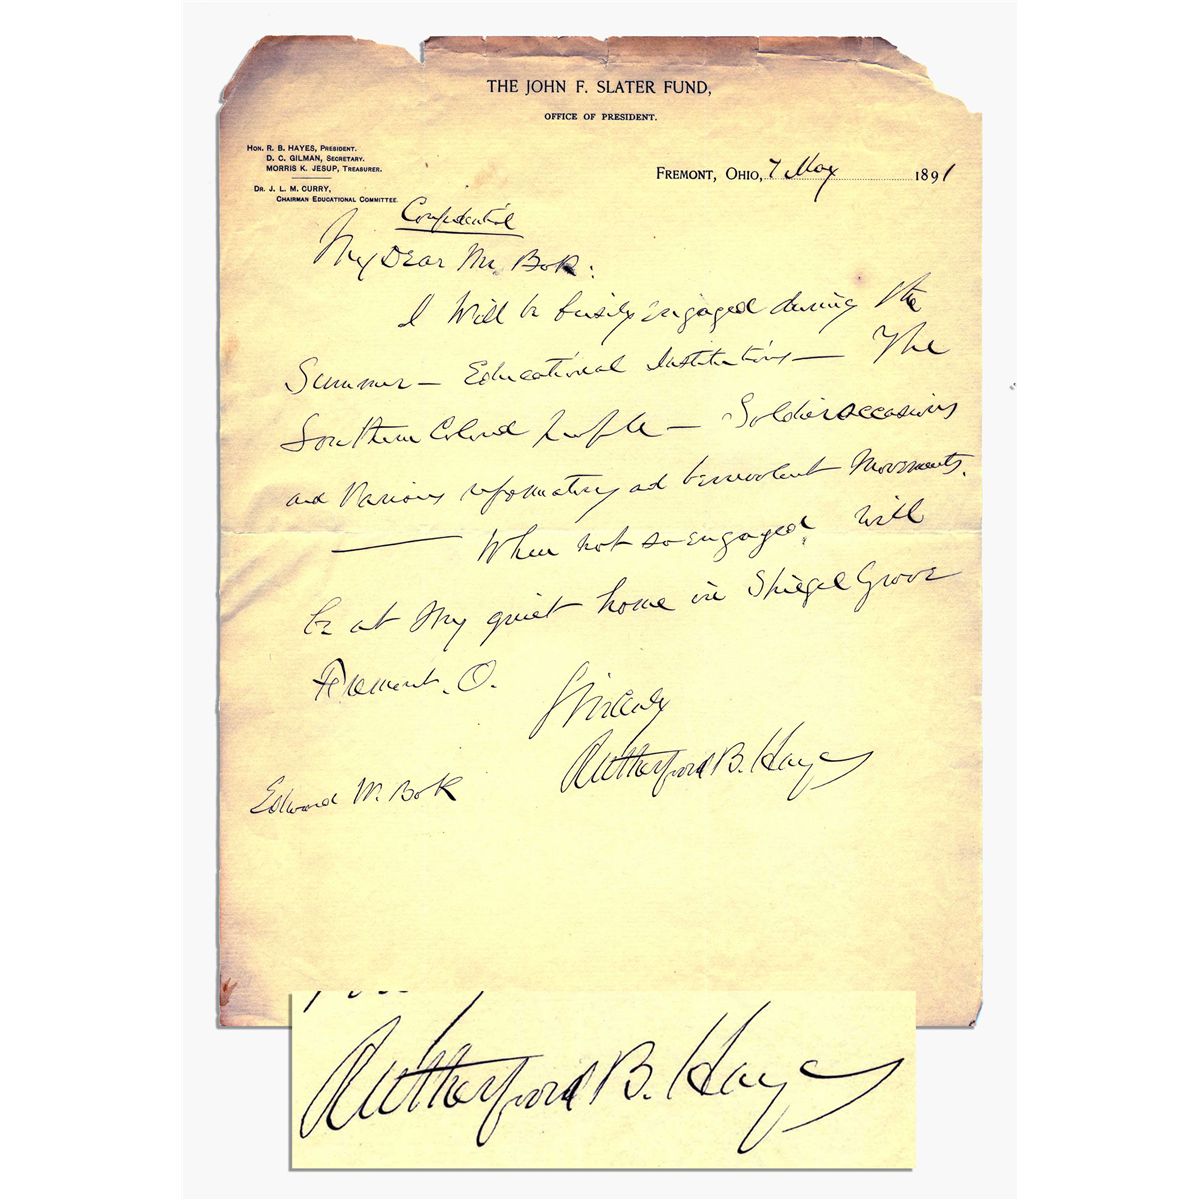 THE JOHN F. SLATER FUND,
OFFICE OF PRESIDENT.
HON. R. B. HAYES, PRESIDENT.
D. C. GILMAN, SECRETARY.
MORRIS K. JESUP, TREASURER.
DR. J. L. M. CURRY,
CHAIRMAN EDUCATIONAL COMMITTEE.
FREMONT, OHIO, 7 May 1891
Confidential
My Dear Mr. Bok:
I will be busily engaged during the
Summer — Educational Institutions — The
Southern Colored people — Soldier occasions
and various reformatory and benevolent movements.
— When not so engaged will
be at my quiet home in Spiegel Grove
Fremont. O.
Sincerely
Rutherford B. Hayes
Edward W. Bok
Rutherford B. Hayes